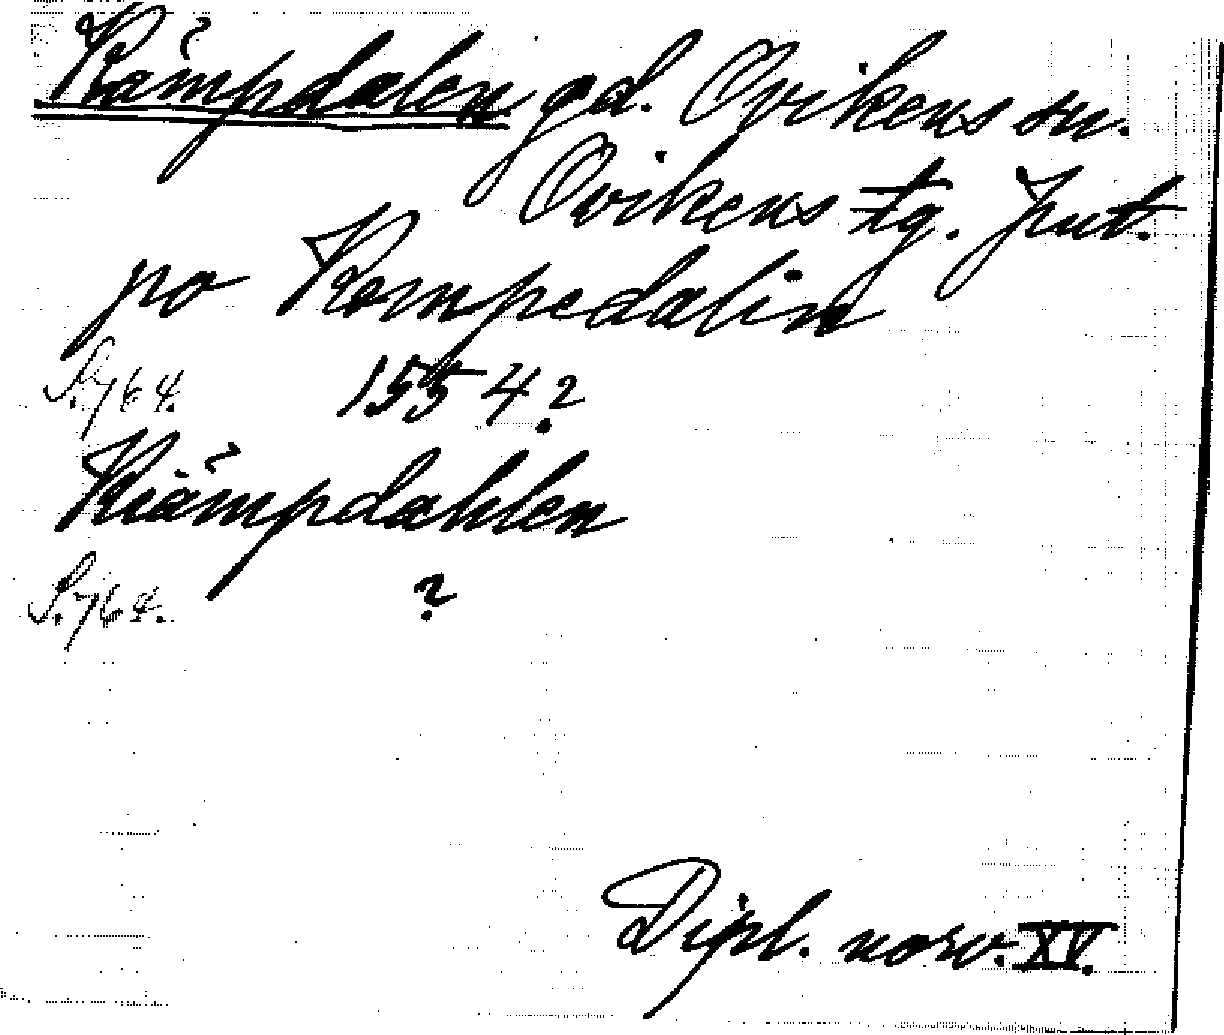 Kämpdalen gd. Ovikens sn.
Ovikens tg. Jmt.
po Kempedalin
S. 764. 1554?
Kiämpdahlen
S. 764. ?
Dipl. norv. XV.